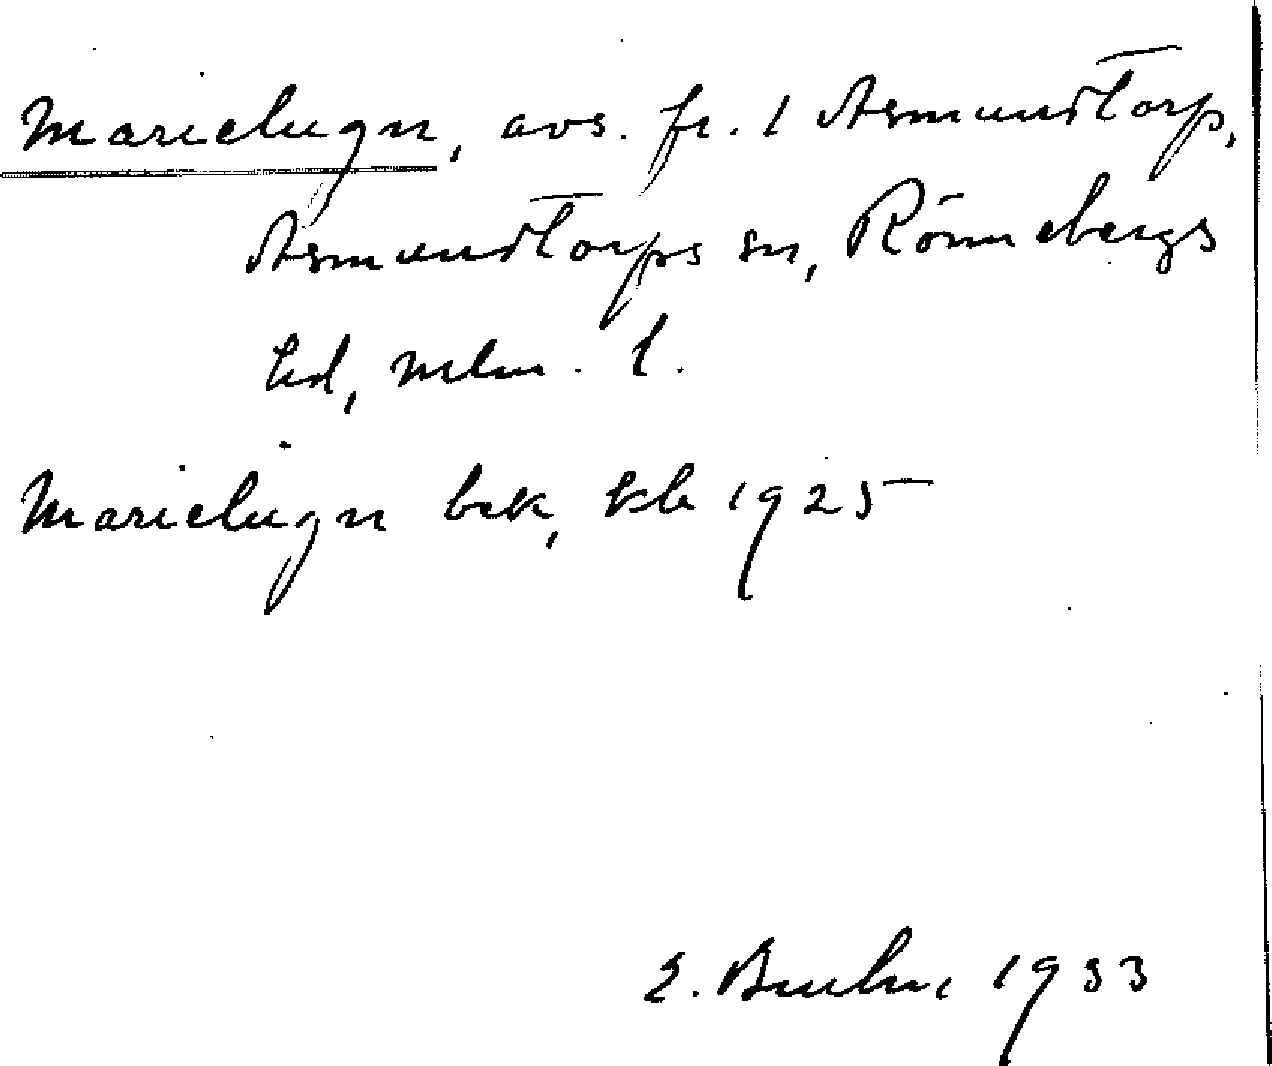 Marielugn, avs. fr. 1 Asmundtorp,
Asmundtorps sn, Rönnebergs
hd, mlm. l.
Marielugn bek, kb 1925
E. Bruhn, 1933